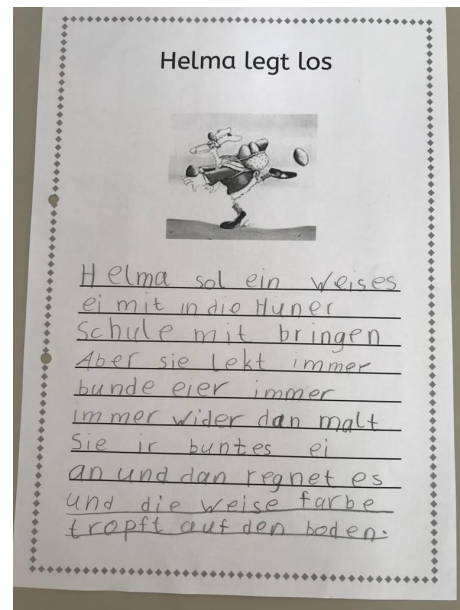 Helma legt los
Helma sol ein Weises
ei mit in die Huner
Schule mit bringen
Aber sie lekt immer
bunde eier immer
immer wider dan malt
Sie ir buntes ei
an und dan regnet es
und die weise farbe
tropft auf den boden.